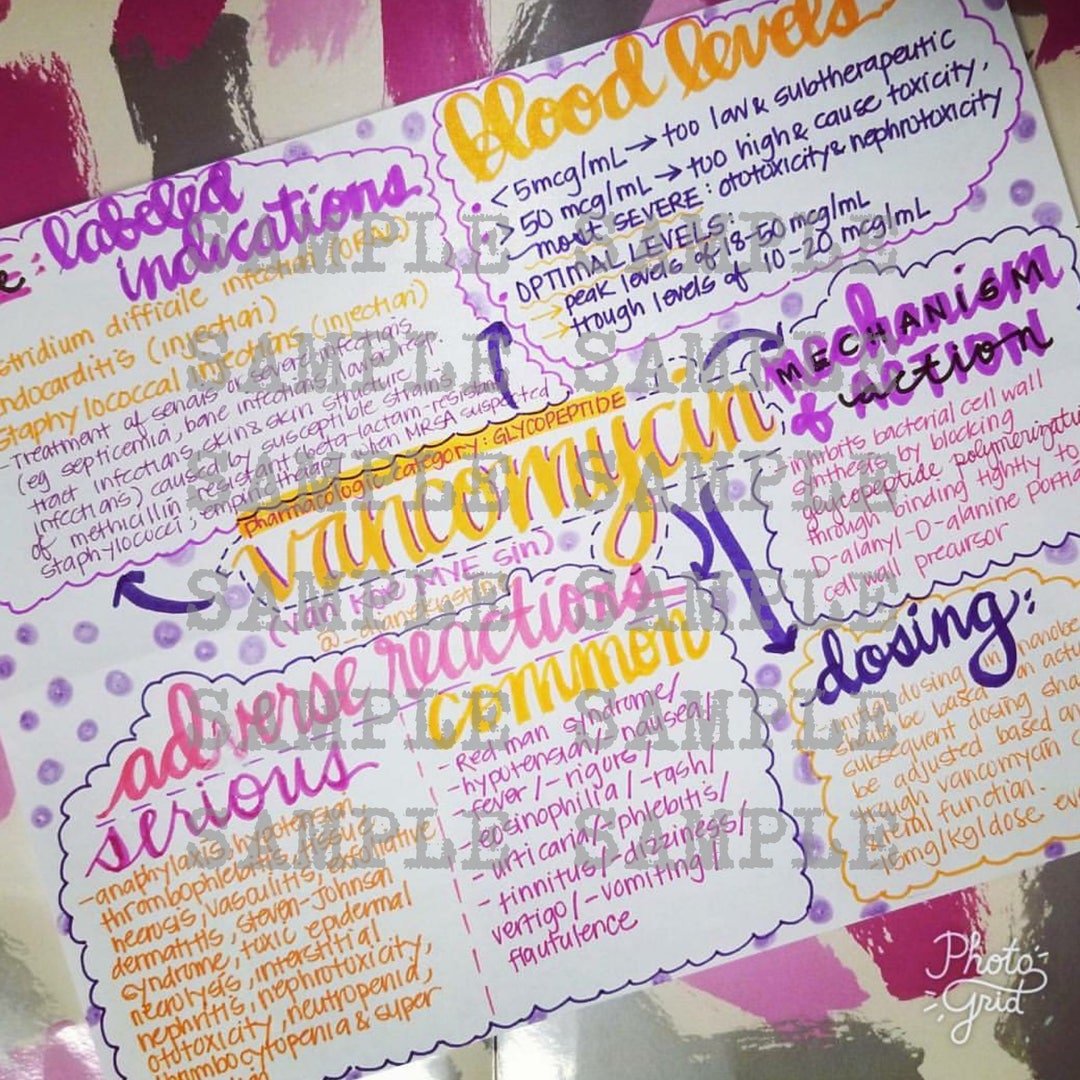 blood levels
<5mcg/mL → too low & subtherapeutic
>50 mcg/mL → too high & cause toxicity,
most SEVERE: ototoxicity & nephrotoxicity
OPTIMAL LEVELS:
→ peak levels of 18-50 mcg/mL
→ trough levels of 10-20 mcg/mL
e: labeled
indications
stridium difficile infection (ORAL)
Endocarditis (injection)
Staphylococcal injections (injection)
-Treatment of serious or severe infections
(eg septicemia, bone infections, lower resp.
tract infections, skin & skin structure
infections) caused by susceptible strains
of methicillin resistant (beta-lactam-resistant
staphylococci; empiric therapy when MRSA suspected
pharmacologic category: GLYCOPEPTIDE
vancomycin
(van koe MYE sin)
MECHANISM
& action
inhibits bacterial cell wall
synthesis by blocking
glycopeptide polymerizatio
through binding tightly to
D-alanyl-D-alanine portio
cell wall precursor
adverse reactions
serious
-anaphylaxis, hypotension
thrombophlebitis, tissue
necrosis, vasculitis, exfoliative
dermatitis, steven-Johnson
syndrome, toxic epidermal
necrolysis, interstitial
nephritis, nephrotoxicity,
ototoxicity, neutropenia,
thrombocytopenia & super
common
-Red man syndrome/
-hypotension/-nausea/
-fever/-rigors/
-eosinophilia/-rash/
-urticaria/-phlebitis/
-tinnitus/-dizziness/
vertigo/-vomiting/
flautulence
dosing:
initial dosing in nonobe
should be based on actu
subsequent dosing sho
be adjusted based on
trough vancomycin c
renal function.
-15mg/kg/dose ev
SAMPLE SAMPLE
SAMPLE SAMPLE
SAMPLE SAMPLE
SAMPLE SAMPLE
SAMPLE SAMPLE
SAMPLE SAMPLE
SAMPLE SAMPLE
SAMPLE SAMPLE
Photo
Grid